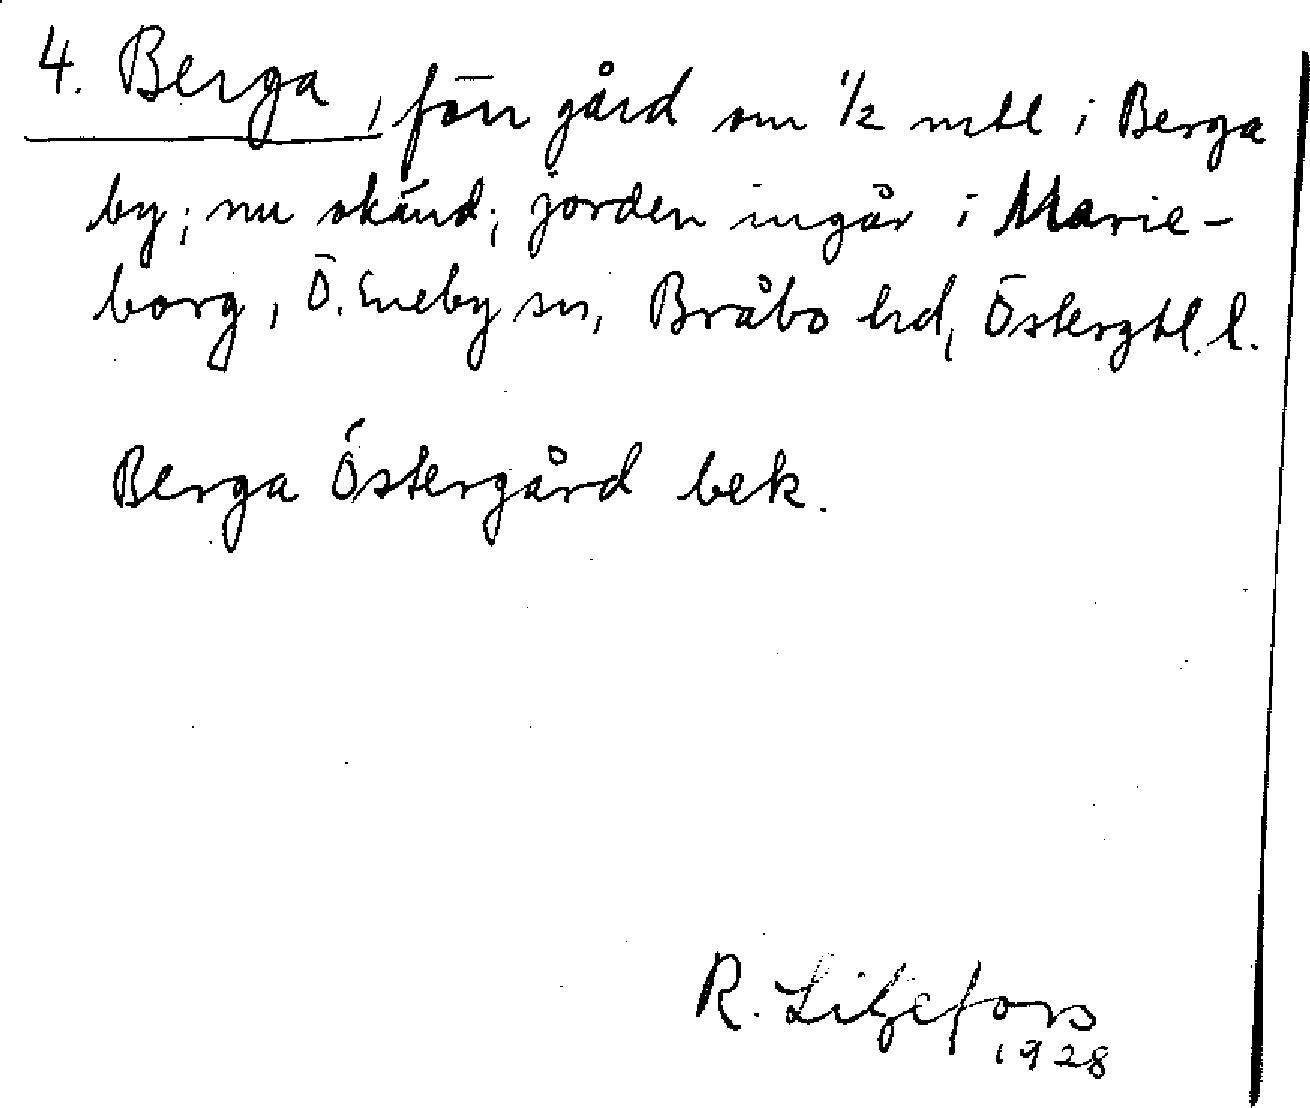 4. Berga, förr gård om 1/2 mtl i Berga
by; nu okänd; jorden ingår i Marie-
borg, Ö. Eneby sn, Bråbo hd, Östergtl. l.
Berga Östergård bek.
R. Liljefors
1928